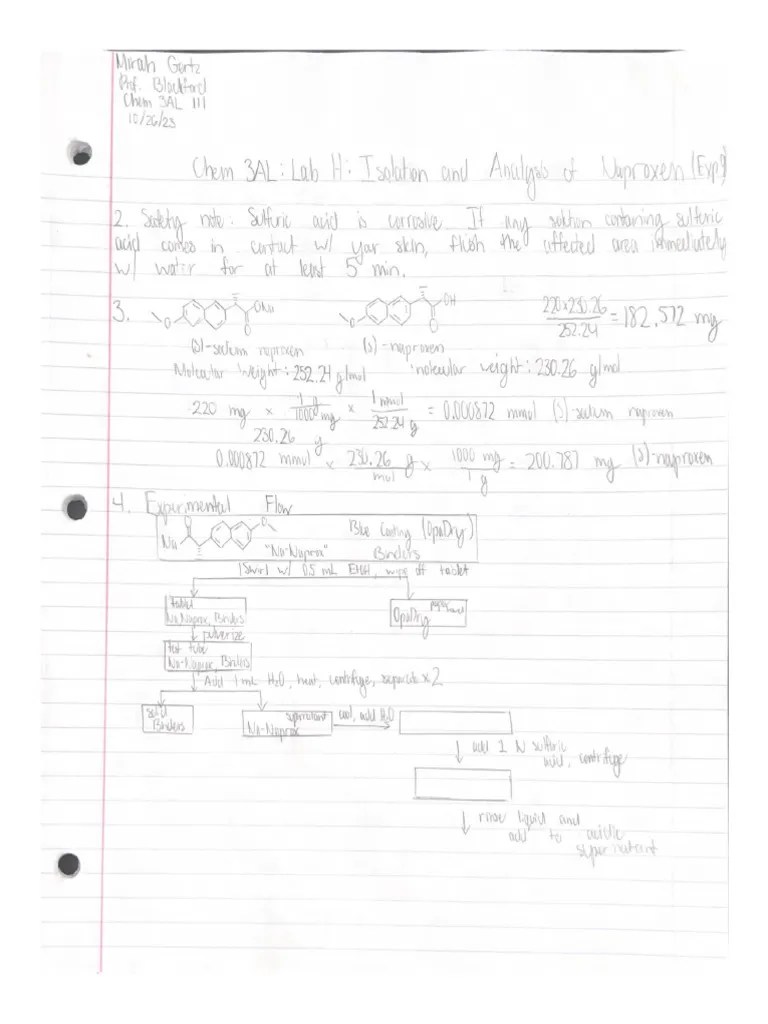 Mirah Gertz
Prof. Blackford
Chem 3AL 111
10/26/23
Chem 3AL: Lab H: Isolation and Analysis of Naproxen (Exp 9)
2. Safety note: Sulfuric acid is corrosive. If any solution containing sulfuric
acid comes in contact w/ your skin, flush the affected area immediately
w/ water for at least 5 min.
3.
O
O
ONa
O
O
OH
220×230.26 / 252.24 = 182.572 mg
(S)-sodium naproxen
(S)-naproxen
Molecular weight: 252.24 g/mol
molecular weight: 230.26 g/mol
220 mg × 1 g / 1000 mg × 1 mmol / 252.24 g = 0.000872 mmol (S)-sodium naproxen
230.26 g
0.000872 mmol × 230.26 g / mol × 1000 mg / 1 g = 200.787 mg (S)-naproxen
4. Experimental Flow
O
Na
O
"Na-Naprox"
Blue Coating (OpaDry)
Binders
Swirl w/ 0.5 mL EtOH, wipe off tablet
tablet
Na-Naprox, Binders
paper towel
OpaDry
pulverize
test tube
Na-Naprox, Binders
Add 1 mL H2O, heat, centrifuge, separate × 2
solid
Binders
supernatant
Na-Naprox
cool, add H2O
add 1 N sulfuric
acid, centrifuge
rinse liquid and
add to acidic
supernatant